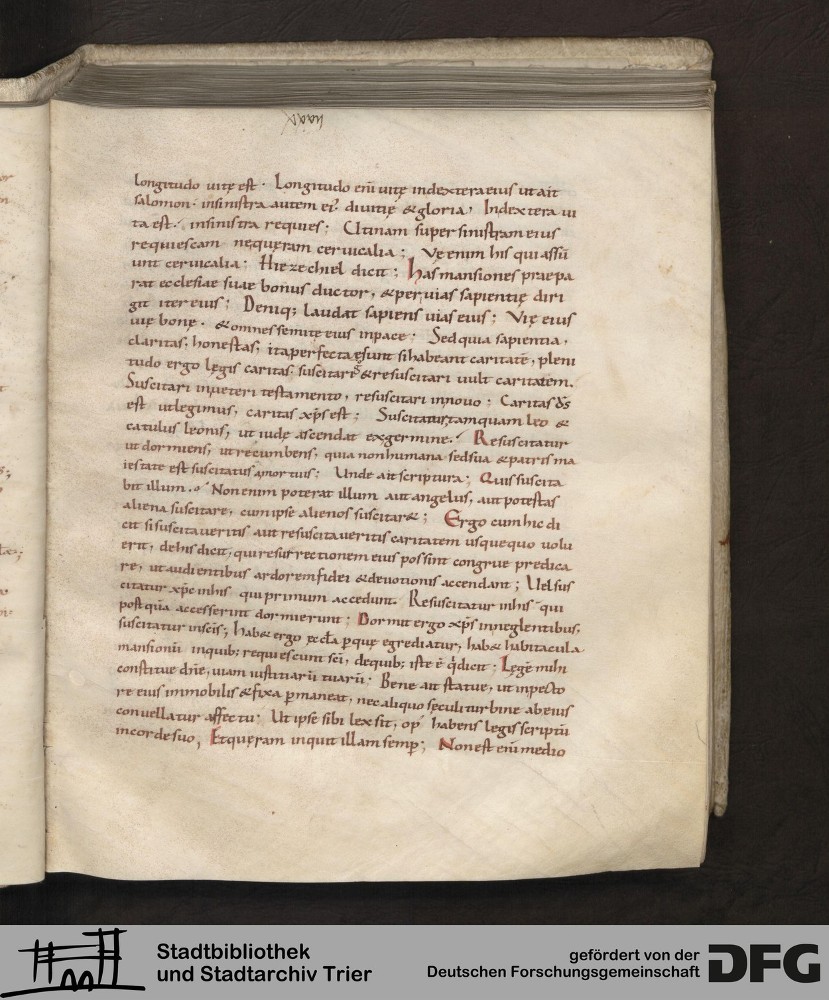 xxvii
longitudo uitę est · Longitudo eni͂ uitę indextera eius ut ait
salomon · insinistra autem ei᾿ · diuitię &gloria, Indextera ui
ta est · insinistra requies ; Utinam super sinistram eius
requiescam nequęram ceruicalia ; Vę enim his qui assu͂
unt ceruicalia ; Hiezechiel dicit ; has mansiones praepa
rat ecclesiae suae bonus ductor , &peruias sapientię diri
git iter eius ; Deniq; laudat sapiens uias eius ; Vię eius
uię bonę · &omnes semitę eius inpace · Sed quia sapientia ,
claritas , honestas , ita perfecta sunt si habeant caritate͂ , pleni
tudo ergo lęgis caritas · suscitari &resuscitari uult caritatem .
Suscitari inueteri testamento , resuscitari innouo ; Caritas d͂s
est utlegimus , caritas xp͂s est ; Suscitatur tamquam leo &
catulus leonis , ut iudę ascendat exgermine · Resuscitatur
ut dormiens , ut recumbens , quia nonhumana sedsua &patris ma
iestate est suscitatus amortuis ; Unde ait scriptura ; Quis suscita
bit illum · Non enim poterat illum aut angelus , aut potestas
aliena suscitare , cum ipse alienos suscitar& ; Ergo cum hic di
cit si suscitaueritis aut resuscitaueritis caritatem usquequo uolu
erit , de his dicit , qui resurrectionem eius possint congrue predica
re , ut audientibus ardorem fidei &deuotionis accendant ; Uel sus
citatur xp͂c inhis qui primum accedunt · Resuscitatur inhis qui
postqua͂ accesserint dormierunt ; Dormit ergo xp͂s inneglentibus ,
suscitatur insc͂is ; hab& ergo ęccl͂a p quę egrediatur , hab& habitacula
mansionu͂ inquib; requiescunt sc͂i , dequib; iste e͂ q͂ dicit ; Lęge͂ mihi
constitue dn͂e , uiam iustitiaru͂ tuaru͂ · Bene ait statue , ut inpecto
re eius immobilis &fixa pmaneat , nec aliquo sęculi turbine ab eius
conuellatur affectu · Ut ipse sibi lex sit , op᾿ habens legis scriptu͂
incorde suo , Etquęram inquit illam semp ; Non est eni͂ medio
Stadtbibliothek
und Stadtarchiv Trier
gefördert von der
Deutschen Forschungsgemeinschaft
DFG